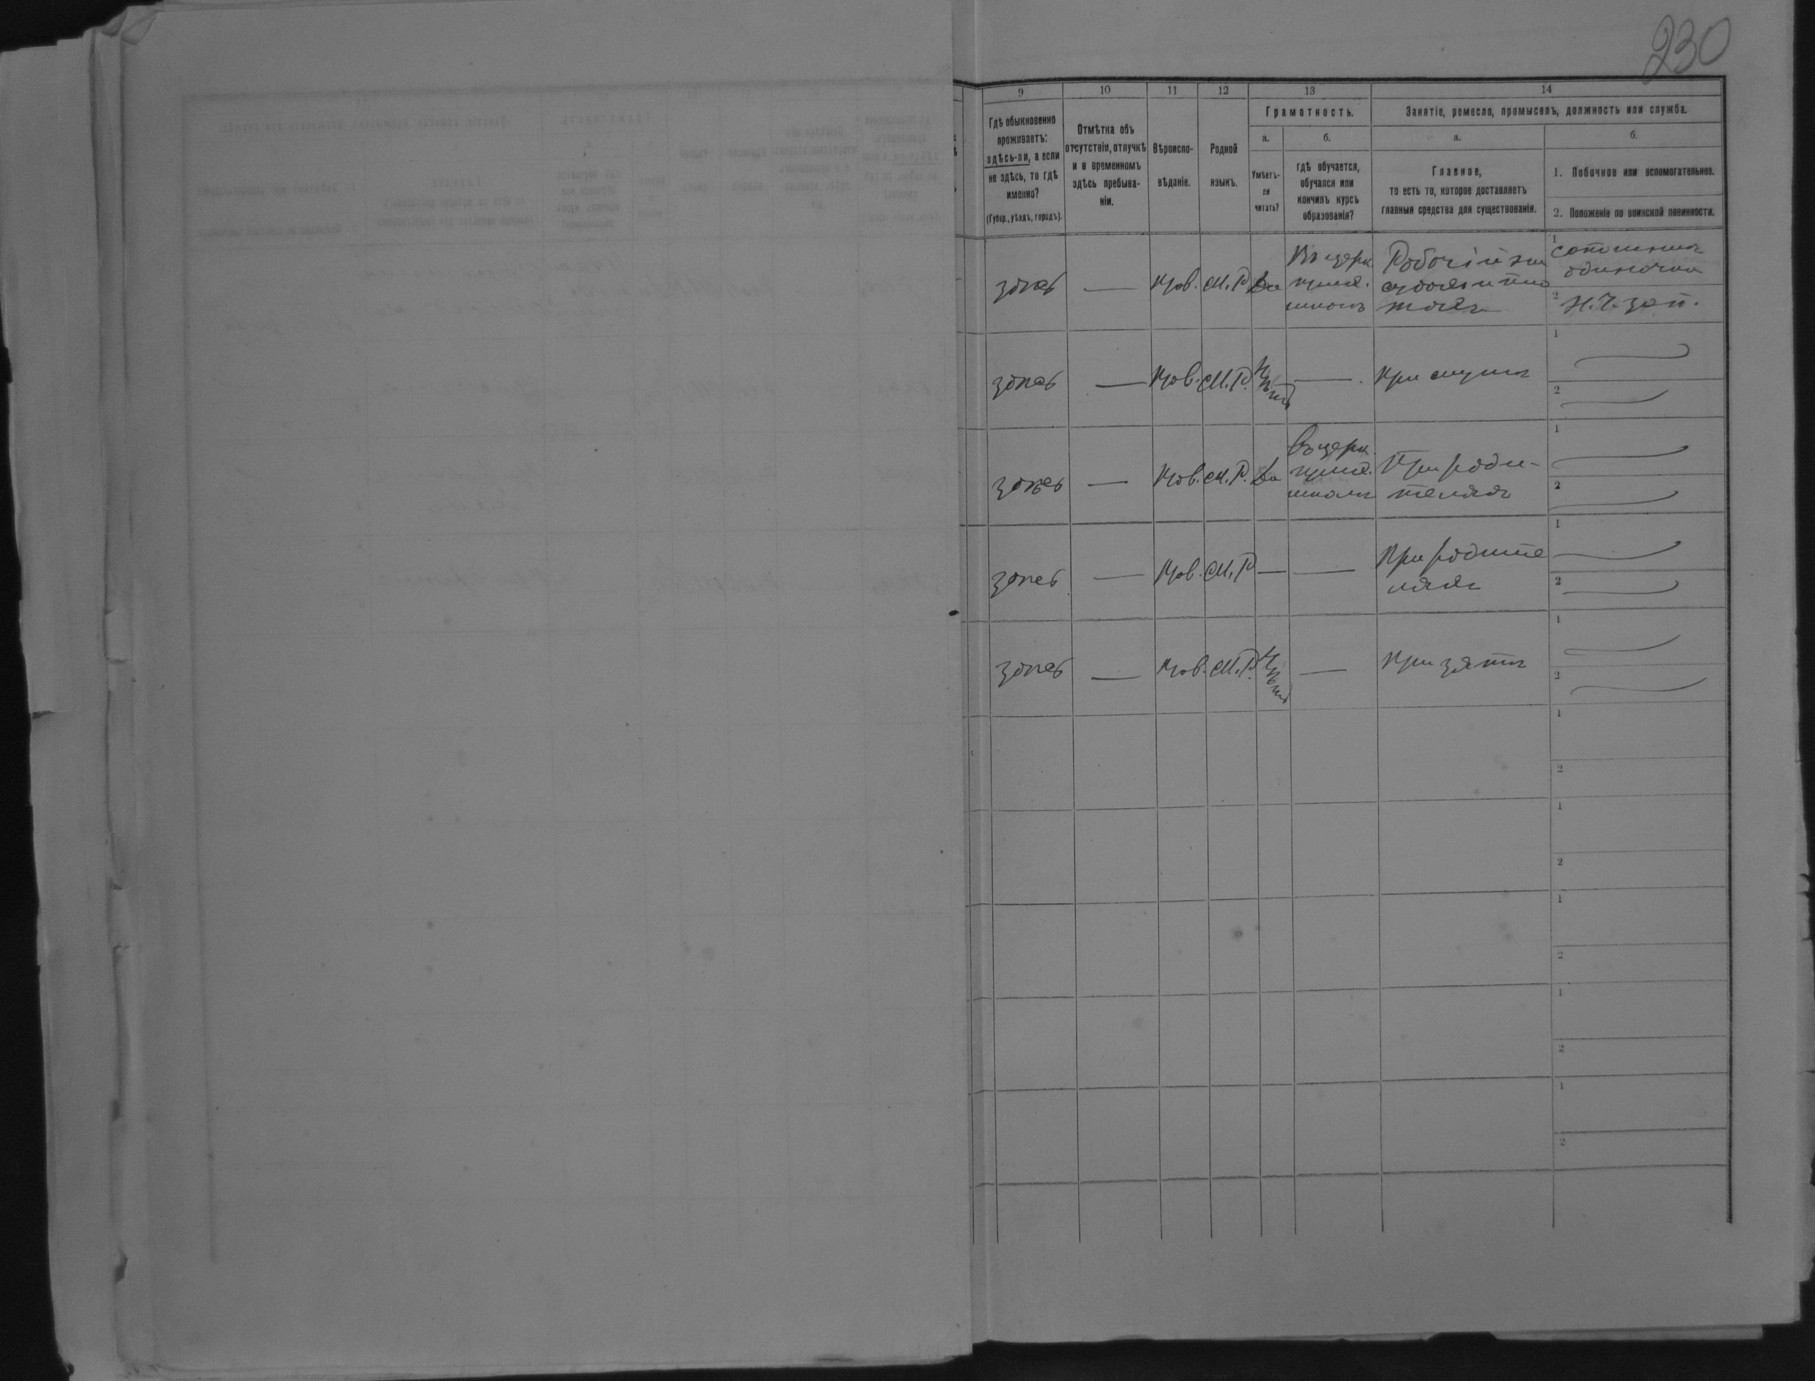 230
9 10 11 12 13 14
Грамотность.
Занятіе, ремесло, промыселъ, должность или служба.
Гдѣ обыкновенно
проживаетъ:
здѣсь-ли, а если
не здѣсь, то гдѣ
именно?
(Губер., уѣздъ, городъ).
Отмѣтка объ
отсутствіи, отлучкѣ
и о временномъ
здѣсь пребыва-
ніи.
Вѣроиспо-
вѣданіе.
Родной
языкъ.
а.
Умѣетъ-
ли
читать?
б.
гдѣ обучается,
обучался или
кончилъ курсъ
образованія?
а.
Главное,
то есть то, которое доставляетъ
главныя средства для существованія.
б.
1. Побочное или вспомогательное.
2. Положеніе по воинской повинности.
здѣсь — Прав. М.Р. Да
Въ церк.
прих.
школѣ
Робочій на
1
одиночка
2 Н.Ч. зап.
здѣсь — Прав. М.Р. Нѣтъ — При мужѣ
1
2
здѣсь — Прав. М.Р. Да
Въ церк.
прих.
школѣ
При роди-
теляхъ
1
2
здѣсь — Прав. М.Р. — —
При родите
ляхъ
1
2
здѣсь — Прав. М.Р. Нѣтъ — При зятѣ
1
2
1
2
1
2
1
2
1
2
1
2